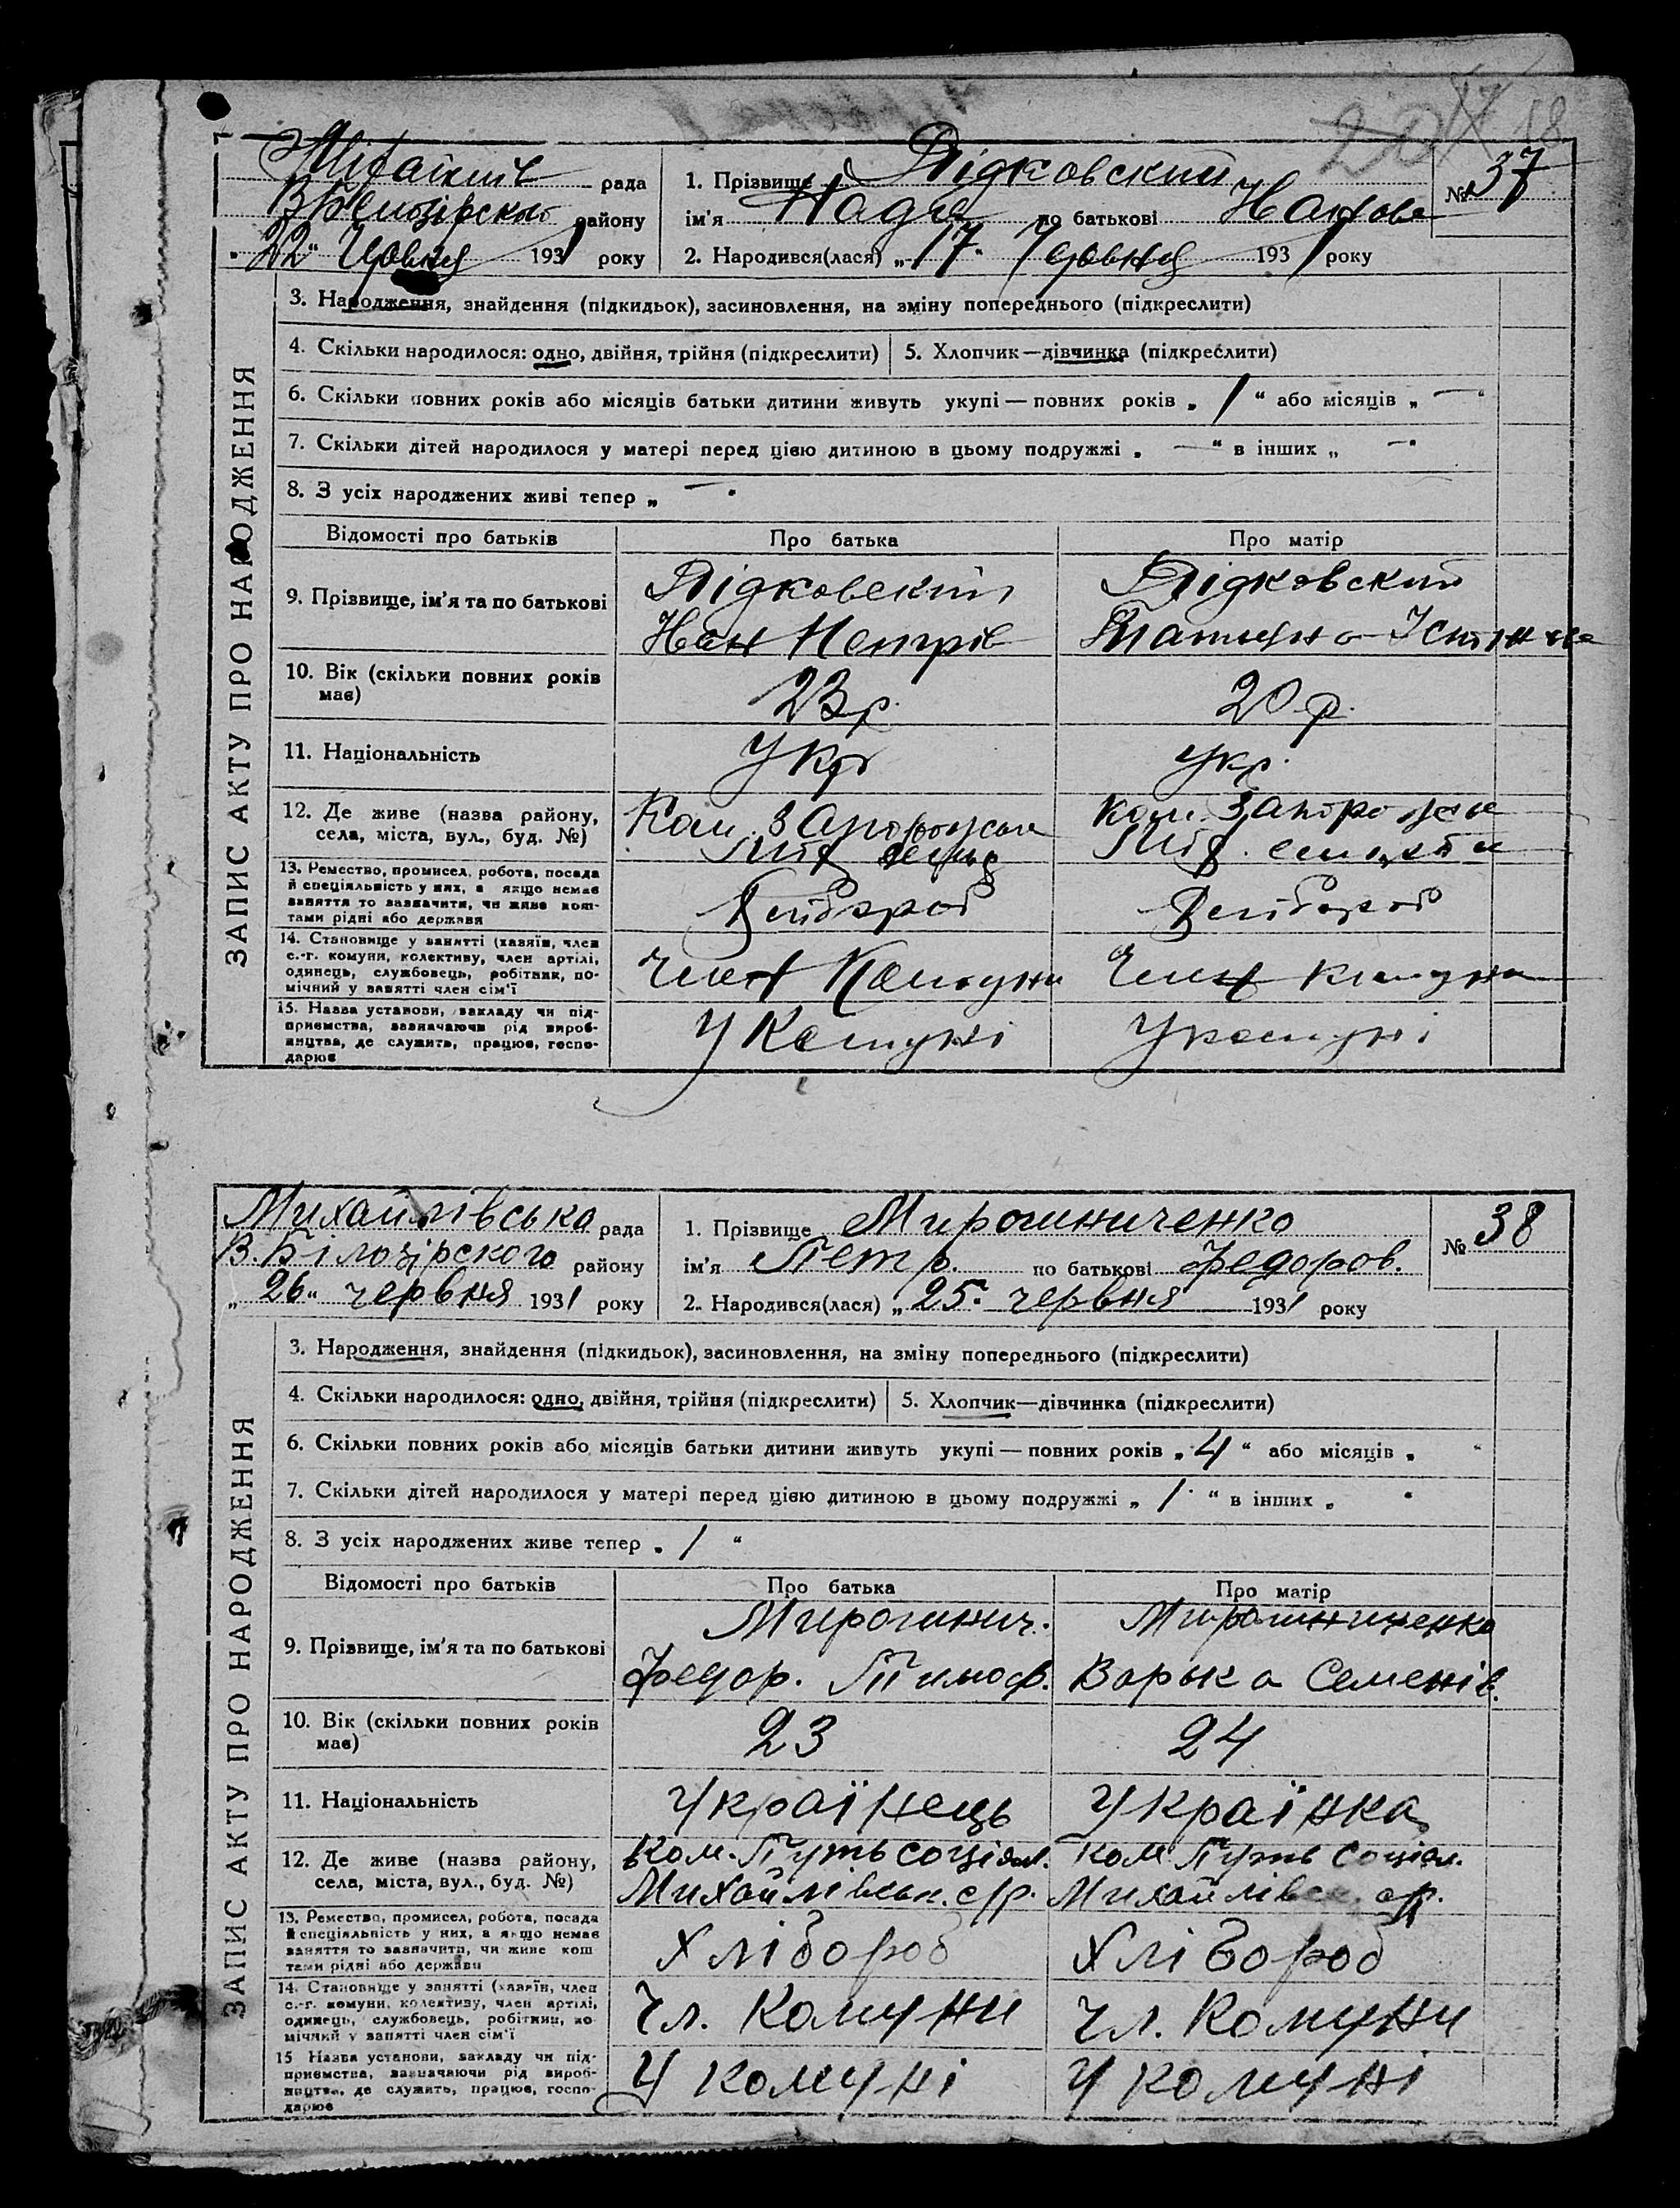 18
рада
1. Прізвище Підковский
№ 37
В Білозірского району
ім'я Надя по батькові Иванова
„22" Червня 1931 року
2. Народився(лася) „17" Червня 1931 року
ЗАПИС АКТУ ПРО НАРОДЖЕННЯ
3. Народження, знайдення (підкидьок), засиновлення, на зміну попереднього (підкреслити)
4. Скільки народилося: одно, двійня, трійня (підкреслити) 5. Хлопчик—дівчинка (підкреслити)
6. Скільки повних років або місяців батьки дитини живуть укупі — повних років „ 1 " або місяців „ — "
7. Скільки дітей народилося у матері перед цією дитиною в цьому подружжі „ — " в інших „ — "
8. З усіх народжених живі тепер „ — "
Відомості про батьків Про батька Про матір
9. Прізвище, ім'я та по батькові
Підковский Підковский
Иван Петрів
10. Вік (скільки повних років має)
23 р. 20 р.
11. Національність
Укр Укр.
12. Де живе (назва району, села, міста, вул., буд. №)
Ком. Запорожськ ком. Запорожськ
13. Ремество, промисел, робота, посада й спеціяльність у них, а якщо немає заняття то зазначити, чи живе коштами рідні або держави
Хлібороб Хлібороб
14. Становище у занятті (хазяїн, член с.-г. комуни, колективу, член артілі, одинець, службовець, робітник, помічний у занятті член сім'ї
Член Комуни Член комуни
15. Назва установи, закладу чи підприємства, зазначаючи рід виробництва, де служить, працює, господарює
У Комуні У комуні
Михайлівська рада
1. Прізвище Мирошниченко
№ 38
В. Білозірского району
ім'я Петр. по батькові Федоров.
„26" червня 1931 року
2. Народився(лася) „25" червня 1931 року
ЗАПИС АКТУ ПРО НАРОДЖЕННЯ
3. Народження, знайдення (підкидьок), засиновлення, на зміну попереднього (підкреслити)
4. Скільки народилося: одно, двійня, трійня (підкреслити) 5. Хлопчик—дівчинка (підкреслити)
6. Скільки повних років або місяців батьки дитини живуть укупі — повних років „ 4 " або місяців „ "
7. Скільки дітей народилося у матері перед цією дитиною в цьому подружжі „ 1 " в інших „ "
8. З усіх народжених живе тепер „ 1 "
Відомості про батьків Про батька Про матір
9. Прізвище, ім'я та по батькові
Мирошнич. Мирошниченко
Федор. Тимоф. Варька Семенів.
10. Вік (скільки повних років має)
23 24
11. Національність
Українець Українка
12. Де живе (назва району, села, міста, вул., буд. №)
Ком. Путь соціял. Ком Путь Соціал.
Михайлівськ. с/р. Михайлівськ. с/р.
13. Ремество, промисел, робота, посада й спеціяльність у них, а якщо немає заняття то зазначити, чи живе коштами рідні або держави
Хлібороб Хлібороб
14. Становище у занятті (хазяїн, член с.-г. комуни, колективу, член артілі, одинець, службовець, робітник, помічний у занятті член сім'ї
Чл. Комуни Чл. Комуни
15 Назва установи, закладу чи підприємства, зазначаючи рід виробництва, де служить, працює, господарює
У комуні У комуні